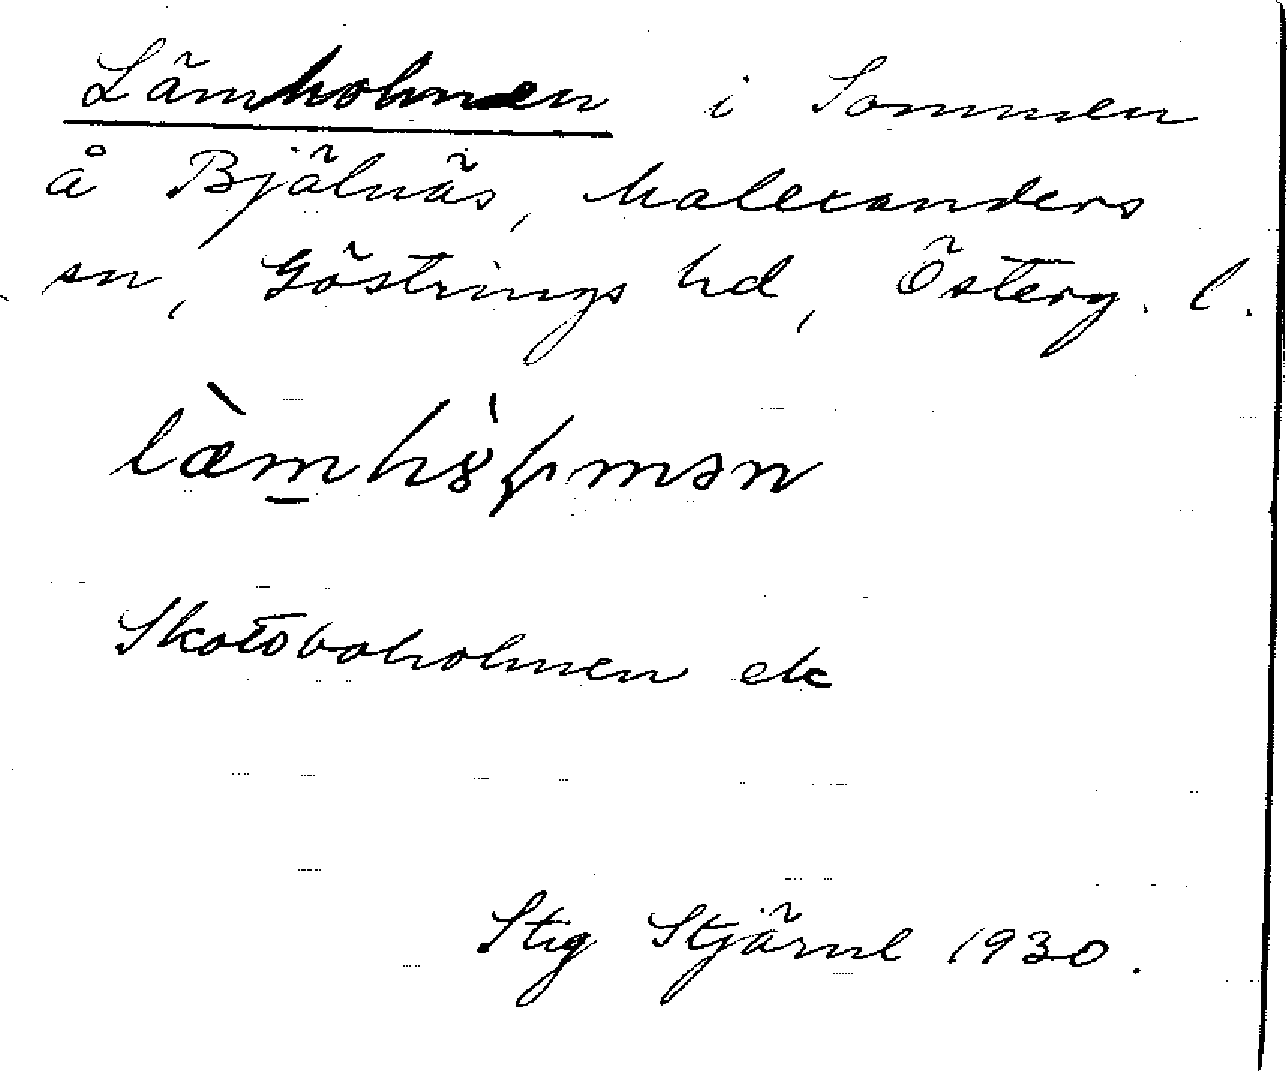 Lämholmen i Sommen
å Bjälnäs, Malexanders
sn, Göstrings hd, Österg. l.
Skatboholmen ek
Stig Stjärnl 1930.